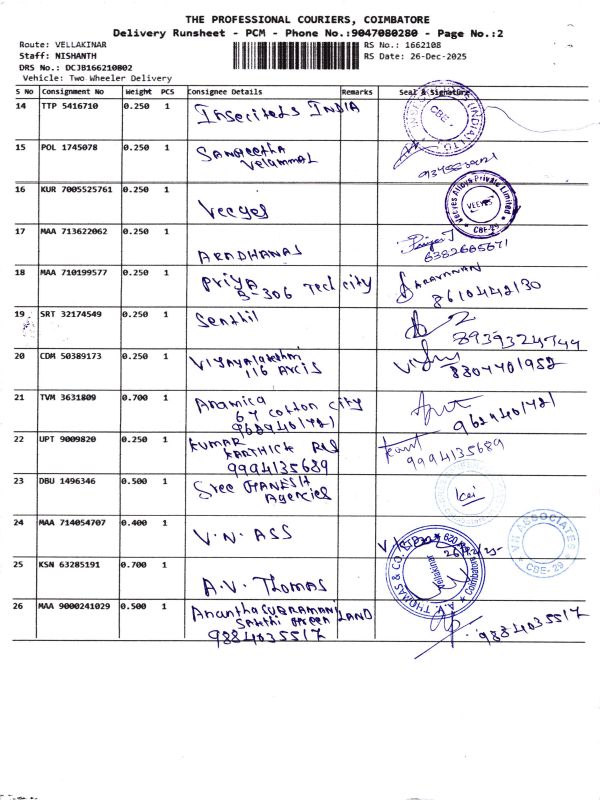 THE PROFESSIONAL COURIERS, COIMBATORE
Delivery Runsheet - PCM - Phone No.:9047080280 - Page No.:2
Route: VELLAKINAR
Staff: NISHANTH
DRS No.: DCJB166210802
Vehicle: Two Wheeler Delivery
RS No.: 1662108
RS Date: 26-Dec-2025
S No Consignment No Weight PCS Consignee Details Remarks Seal & Signature
14 TTP 5416710 0.250 1 INDIA
CBE-
15 POL 1745078 0.250 1 Sangeetha
Velammal
16 KUR 7005525761 0.250 1 Veeyes
Veeyes Alloys Private Limited
VEEYES
CBE-29
17 MAA 713622062 0.250 1 ARADHANAS
6382665671
18 MAA 710199577 0.250 1 Priya
B-306 Tech city
SARAVANAN
8610442130
19 SRT 32174549 0.250 1 Senthil
8939324744
20 CDM 50389173 0.250 1 Vijayalakshmi
116 Arcis
8304401952
21 TVM 3631809 0.700 1 Anamica
67 cotton city
9629401721
9629401721
22 UPT 9009820 0.250 1 KUMAR
KARTHICK
9994135689
9994135689
23 DBU 1496346 0.500 1 Sree GANESH
Agencies
24 MAA 714054707 0.400 1 V.N. ASS
26/12/25
VN ASSOCIATES
CBE-29
25 KSN 63285191 0.700 1 A.V. Thomas
A.V. THOMAS & CO.
Vellakinar
Coimbatore
26 MAA 9000241029 0.500 1 Anantha SUBRAMANI
Sakthi Green LAND
9884035517
9884035517